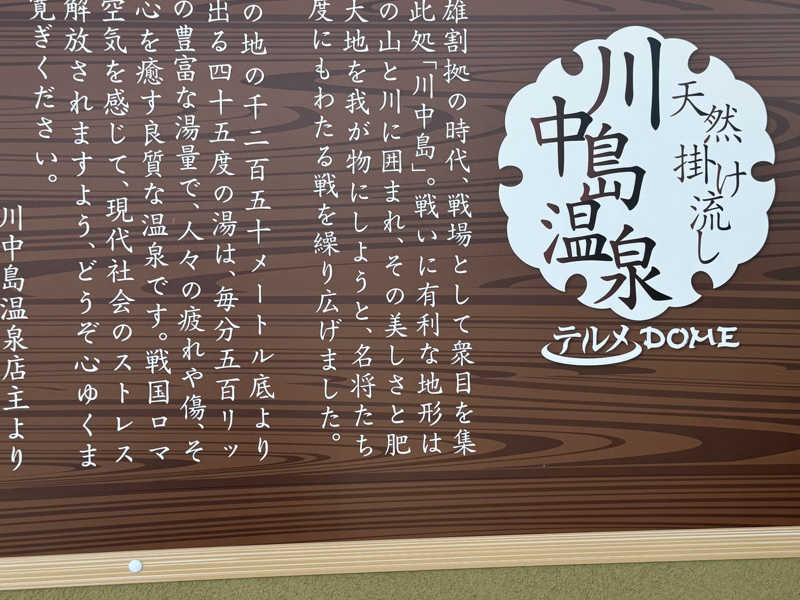 天然
掛け流し
川中島温泉
テルメDOME
雄割拠の時代、戦場として衆目を集
此処「川中島」。戦いに有利な地形は
の山と川に囲まれ、その美しさと肥
大地を我が物にしようと、名将たち
度にもわたる戦を繰り広げました。
の地の千二百五十メートル底より
出る四十五度の湯は、毎分五百リッ
の豊富な湯量で、人々の疲れや傷、そ
心を癒す良質な温泉です。戦国ロマ
空気を感じて、現代社会のストレス
解放されますよう、どうぞ心ゆくま
寛ぎください。
川中島温泉店主より